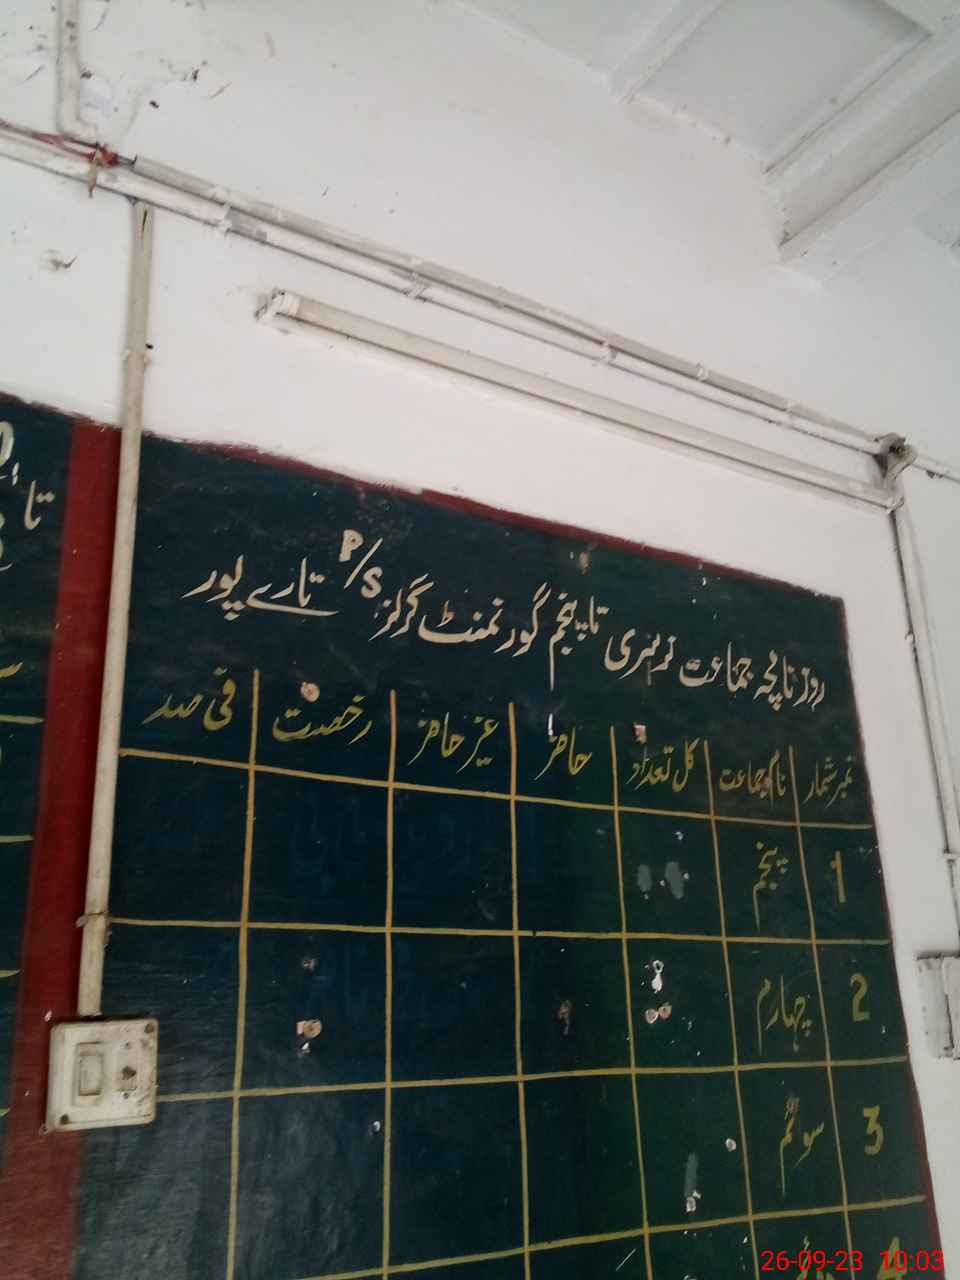 روزنامچہ جماعت نرسری تا پنجم گورنمنٹ گرلز P/S تارے پور
نمبر شمار نام جماعت کل تعداد حاضر غیر حاضر رخصت فی صد
1 پنجم
2 چہارم
3 سوئم
4
تا
26-09-23 10:03